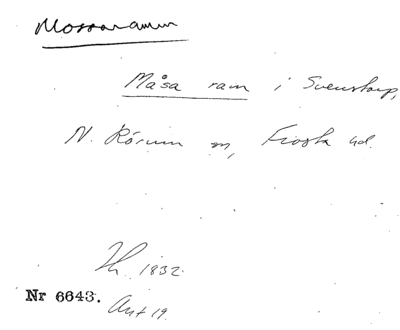 Mossaramm
Måsa ram i Svenstorp,
N. Rörum sn, Frosta hd.
Th. 1832.
Nr 6643.
Ant 19